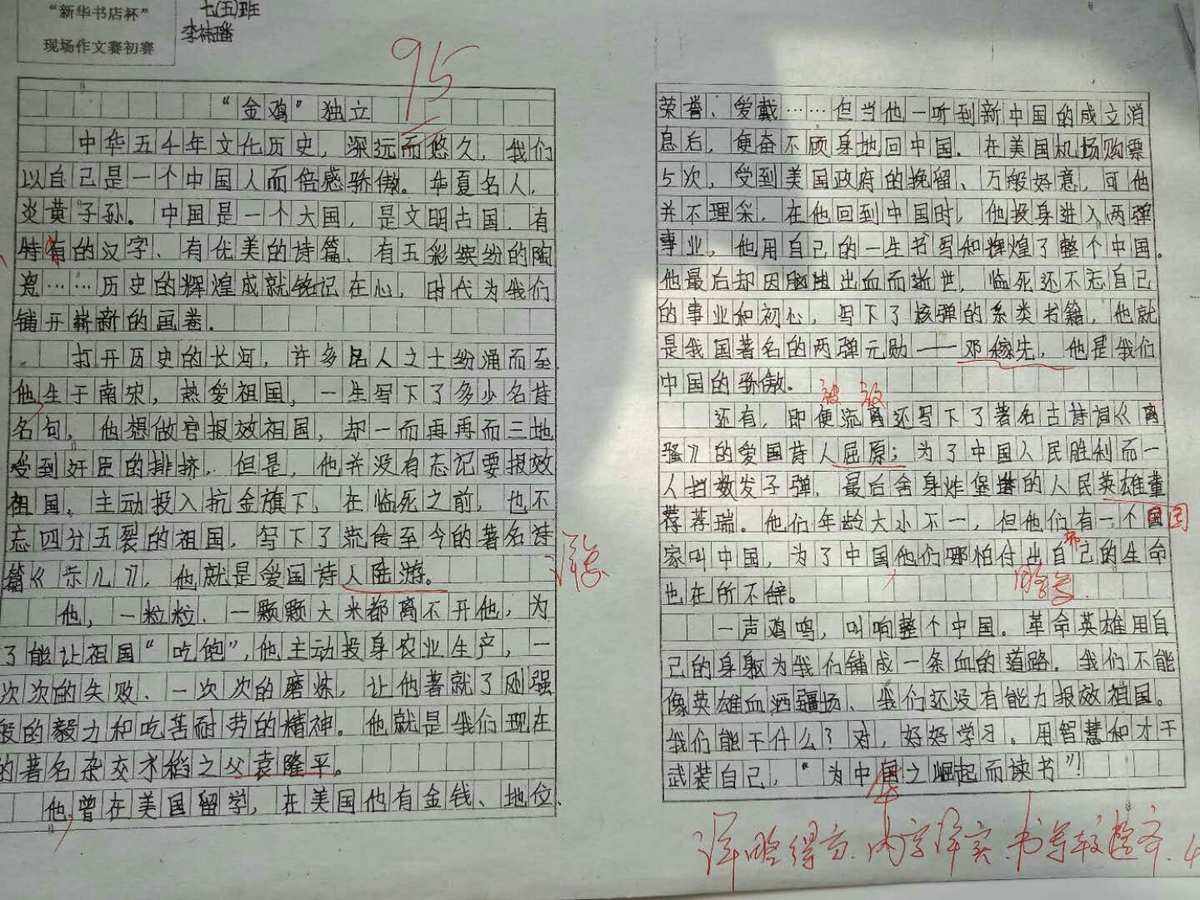 “新华书店杯”
现场作文赛初赛
七(五)班
95
“金鸡”独立
中华五千年文化历史，深远而悠久，我们
以自己是一个中国人而倍感骄傲。华夏名人，
炎黄子孙。中国是一个大国，是文明古国，有
特有的汉字、有优美的诗篇、有五彩缤纷的陶
瓷……历史的辉煌成就铭记在心，时代为我们
铺开崭新的画卷。
打开历史的长河，许多名人之士纷涌而至
他生于南宋，热爱祖国，一生写下了多少名诗
名句，他想做官报效祖国，却一而再再而三地
受到奸臣的排挤，但是，他并没有忘记要报效
祖国，主动投入抗金旗下，在临死之前，也不
忘四分五裂的祖国，写下了流传至今的著名诗
篇《示儿》，他就是爱国诗人陆游。
他，一粒粒，一颗颗大米都离不开他，为
了能让祖国“吃饱”，他主动投身农业生产，一
次次的失败、一次次的磨炼，让他著就了刚强
般的毅力和吃苦耐劳的精神。他就是我们现在
的著名杂交水稻之父袁隆平。
他，曾在美国留学，在美国他有金钱、地位、
荣誉、爱戴……但当他一听到新中国的成立消
息后，便奋不顾身地回中国。在美国机场购票
5次，受到美国政府的挽留、万般好意，可他
并不理采，在他回到中国时，他投身进入两弹
事业，他用自己的一生书写和辉煌了整个中国。
他最后却因脑出血而逝世，临死还不忘自己
的事业和初心，写下了核弹的系类书籍，他就
是我国著名的两弹元勋——邓稼先，他是我们
中国的骄傲。
被 放
还有，即便流离还写下了著名古诗词《离
骚》的爱国诗人屈原；为了中国人民胜利而一
人挡数发子弹，最后舍身炸堡的人民英雄董
荐荐瑞。他们年龄大小不一，但他们有一个国
国
详
家叫中国，为了中国他们哪怕付出自己的生命
也在所不辞。
略
一声鸡鸣，叫响整个中国。革命英雄用自
己的身躯为我们铺成一条血的道路，我们不能
像英雄血洒疆场、我们还没有能力报效祖国。
我们能干什么？对，好好学习。用智慧和才干
武装自己，“为中国之崛起而读书”！
华
详略得当、内容详实、书写较整齐.